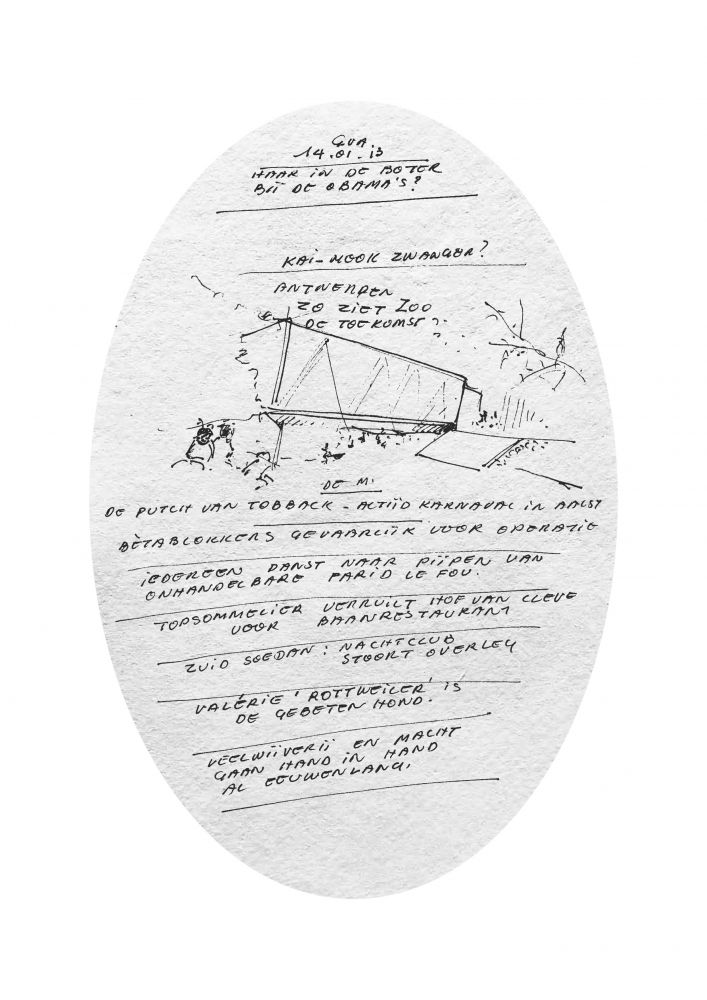 GVA.
14.01.13
HAAR IN DE BOTER
BIJ DE OBAMA'S?
KAI-MOOK ZWANGER?
ANTWERPEN
ZO ZIET ZOO
DE TOEKOMST
DE M.
DE PUTCH VAN TOBBACK - ALTIJD KARNAVAL IN AALST
BÈTABLOKKERS GEVAARLIJK VOOR OPERATIE
IEDEREEN DANST NAAR PIJPEN VAN
ONHANDELBARE FARID LE FOU.
TOPSOMMELIER VERRUILT HOF VAN CLEVE
VOOR BAANRESTAURANT
ZUID SOEDAN: NACHTCLUB
STOORT OVERLEY
VALÉRIE 'ROTTWEILER' IS
DE GEBETEN HOND.
VEELWIJVERIJ EN MACHT
GAAN HAND IN HAND
AL EEUWENLANG.